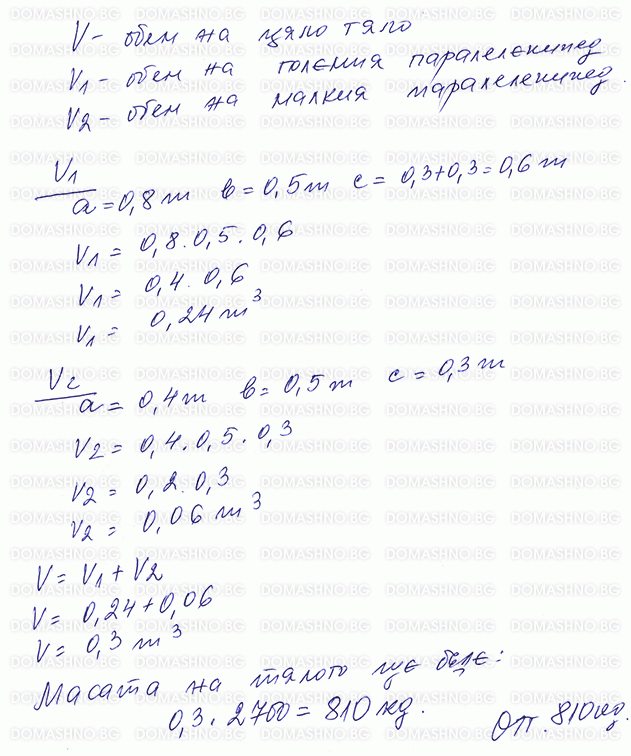 V - обем на цяло тяло
V1 - обем на големия паралелепипед
V2 - обем на малкия паралелепипед.
V1
a = 0,8 m в = 0,5 m c = 0,3+0,3 = 0,6 m
V1 = 0,8 . 0,5 . 0,6
V1 = 0,4 . 0,6
V1 = 0,24 m³
V2
a = 0,4 m в = 0,5 m c = 0,3 m
V2 = 0,4 . 0,5 . 0,3
V2 = 0,2 . 0,3
V2 = 0,06 m³
V = V1 + V2
V = 0,24 + 0,06
V = 0,3 m³
Масата на тялото ще бъде:
0,3 . 2700 = 810 кg. Отг. 810 кg.
DOMASHNO.BG